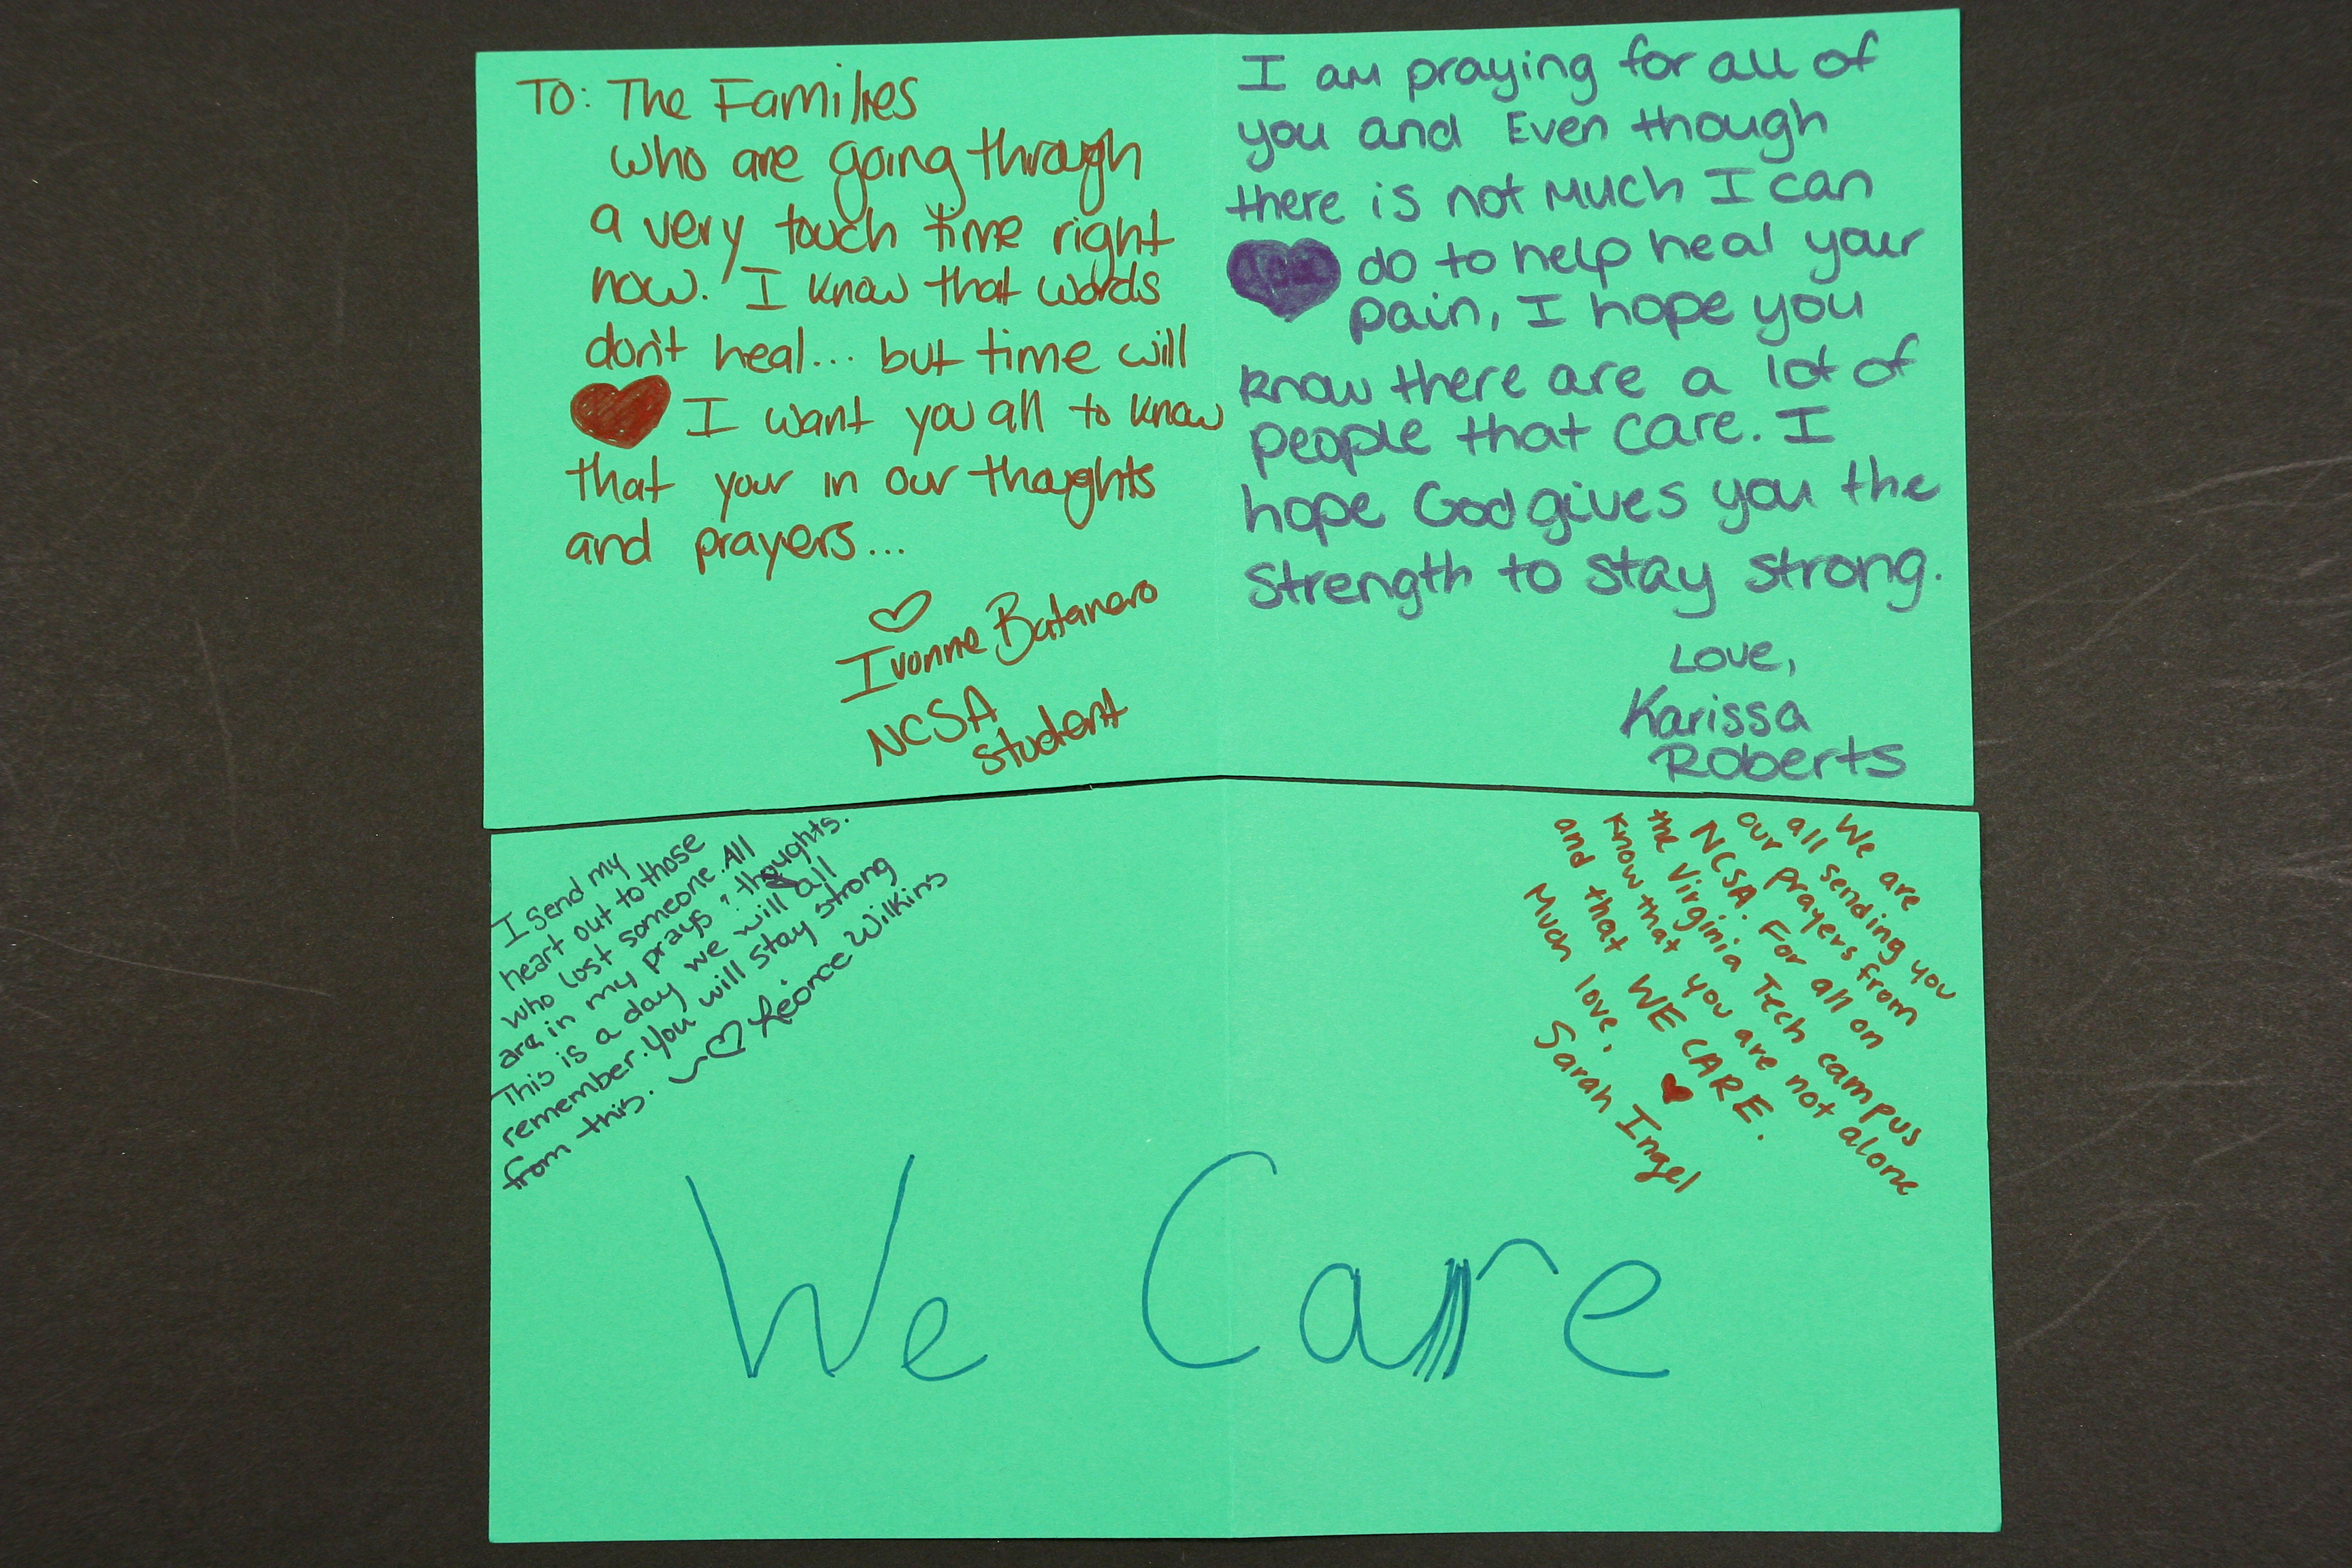 To: The Families
who are going through
a very touch time right
now. I know that words
don't heal... but time will
I want you all to know
that your in our thoughts
and prayers...
Ivonne Batanero
NCSA
student
I am praying for all of
you and Even though
there is not much I can
do to help heal your
pain, I hope you
know there are a lot of
people that care. I
hope God gives you the
strength to stay strong.
Love,
Karissa
Roberts
I send my
heart out to those
who lost someone. All
are in my prays & thoughts.
This is a day we will all
remember. You will stay strong
from this. Léonce Wilkins
We are
all sending you
our prayers from
NCSA. For all on
the Virginia Tech campus
know that you are not alone
and that WE CARE.
Much love,
Sarah Ingel
We Care